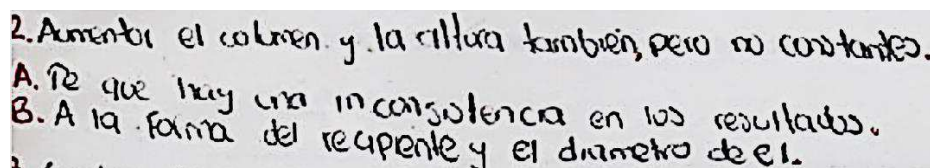 2. Aumentar el columen y la altura también, pero no constantes.
A. De que hay una inconsistencia en los resultados.
B. A la forma del recipiente y el diametro de el.